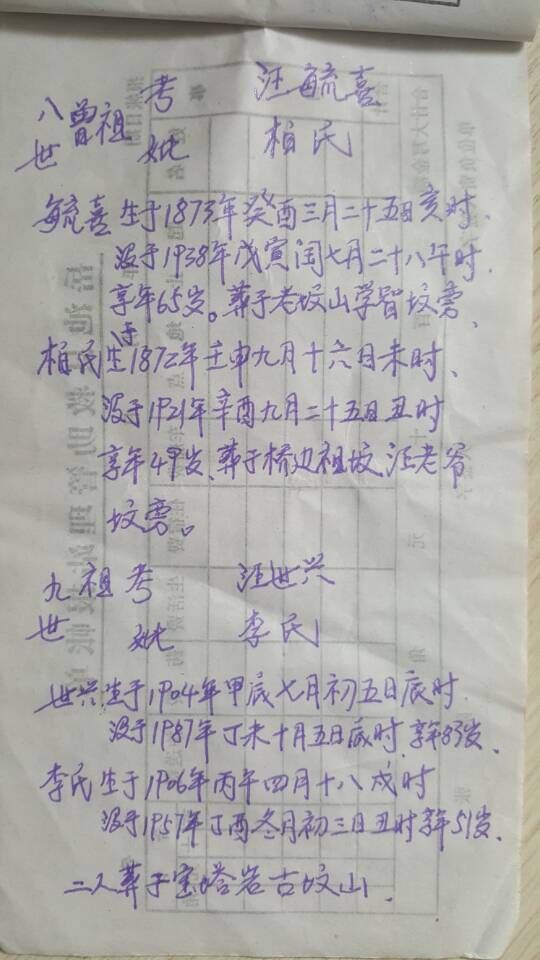 八世 曾祖 考 汪毓喜
妣 柏民
毓喜生于1873年癸酉三月二十五日亥时、
没于1938年戊寅闰七月二十八午时、
享年65岁。葬于老坟山学智坟旁、
柏民生于1872年壬申九月十六日未时、
没于1921年辛酉九月二十五日丑时
享年49岁、葬于桥边祖坟、汪老爷
坟旁。
九世 祖 考 汪世兴
妣 李民
世兴生于1904年甲辰七月初五日辰时、
没于1987年丁未十月五日辰时、享年83岁、
李民生于1906年丙午四月十八戌时
没于1957年丁酉冬月初三日丑时享年51岁、
二人葬于宝塔岩古坟山、